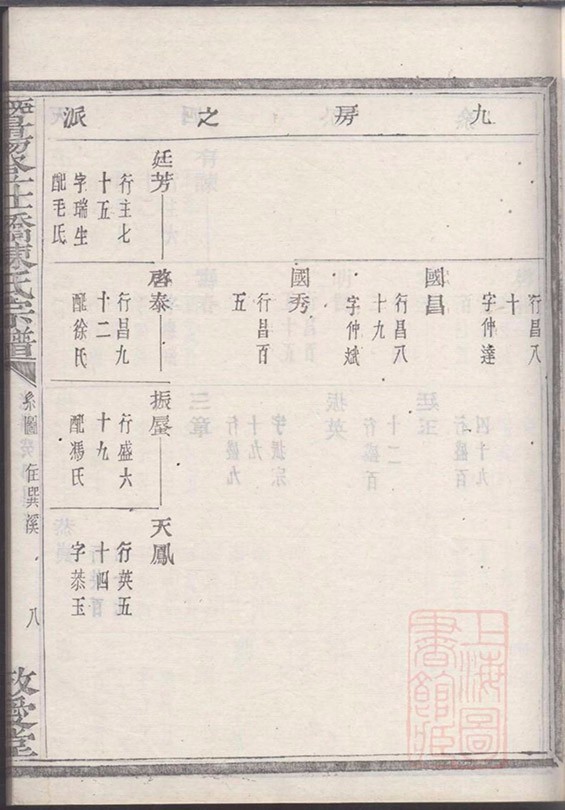 九房之派
行昌八
十
字仲達
國昌
行昌八
十九
字仲斌
國秀
行昌百
五
廷芳
行主七
十五
字瑞生
配毛氏
啓泰
行昌九
十二
配徐氏
振蜃
行盛六
十九
配馮氏
天鳳
行英五
十四
字恭玉
橋陳氏宗譜
系圖 在巽溪 八
敦愛堂
上海圖
書館藏